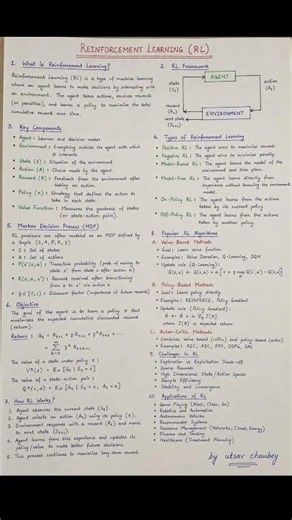 REINFORCEMENT LEARNING (RL)
1. What is Reinforcement Learning?
Reinforcement Learning (RL) is a type of machine learning
where an agent learns to make decisions by interacting with
an environment. The agent takes actions, receives rewards
(or penalties), and learns a policy to maximize the total
cumulative reward over time.
2. RL Framework
AGENT
state
(St)
action
(At)
reward
(Rt)
ENVIRONMENT
next state
(St+1)
3. Key Components
• Agent : Learner and decision maker.
• Environment : Everything outside the agent with which
it interacts.
• State (S) : Situation of the environment.
• Action (A) : Choice made by the agent.
• Reward (R) : Feedback from the environment after
taking an action.
• Policy (π) : Strategy that defines the action
to take in each state.
• Value Function : Measures the goodness of states
(or state-action pairs).
4. Types of Reinforcement Learning
• Positive RL : The agent aims to maximize reward.
• Negative RL : The agent aims to minimize penalty.
• Model-Based RL : The agent learns the model of the
environment and then plans.
• Model-Free RL : The agent learns directly from
experience without knowing the environment
model.
• On-Policy RL : The agent learns from the actions
taken by its current policy.
• Off-Policy RL : The agent learns from the actions
taken by another policy.
5. Markov Decision Process (MDP)
RL problems are often modeled as an MDP defined by
a tuple (S, A, P, R, γ)
• S : Set of states
• A : Set of actions
state s' from state s after action a
a to s' via action a
• γ ∈ [0,1] : Discount factor (importance of future reward)
6. Objective
The goal of the agent is to learn a policy π that
maximizes the expected cumulative discounted reward
(return).
The value of a state under policy π :
The value of a state-action pair :
7. How RL Works?
1. Agent observes the current state (St)
2. Agent selects an action (At) using its policy (π).
3. Environment responds with a reward (Rt) and moves
to next state (St+1)
4. Agent learns from this experience and updates its
policy/value to make better future decisions.
5. This process continues to maximize long-term reward.
8. Popular RL Algorithms
A. Value-Based Methods
• Goal : Learn value function
• Examples : Value Iteration, Q-Learning, DQN
• Update rule (Q-Learning) :
B. Policy-Based Methods
• Goal : Learn policy directly
• Examples : REINFORCE, Policy Gradient
• Update rule (Policy Gradient) :
where J(θ) is expected return.
C. Actor-Critic Methods
• Combines value-based (critic) and policy-based (actor)
• Examples : A2C, A3C, PPO, DDPG, SAC
9. Challenges in RL
• Exploration vs Exploitation Trade-off
• Sparse Rewards
• High Dimensional State/Action Spaces
• Sample Efficiency
• Stability and Convergence
10. Applications of RL
• Game Playing (Atari, Chess, Go)
• Robotics and Automation
• Autonomous Vehicles
• Recommender Systems
• Resource Management (Networks, Cloud, Energy)
• Finance and Trading
• Healthcare (Treatment Planning)
by utsav chaubey